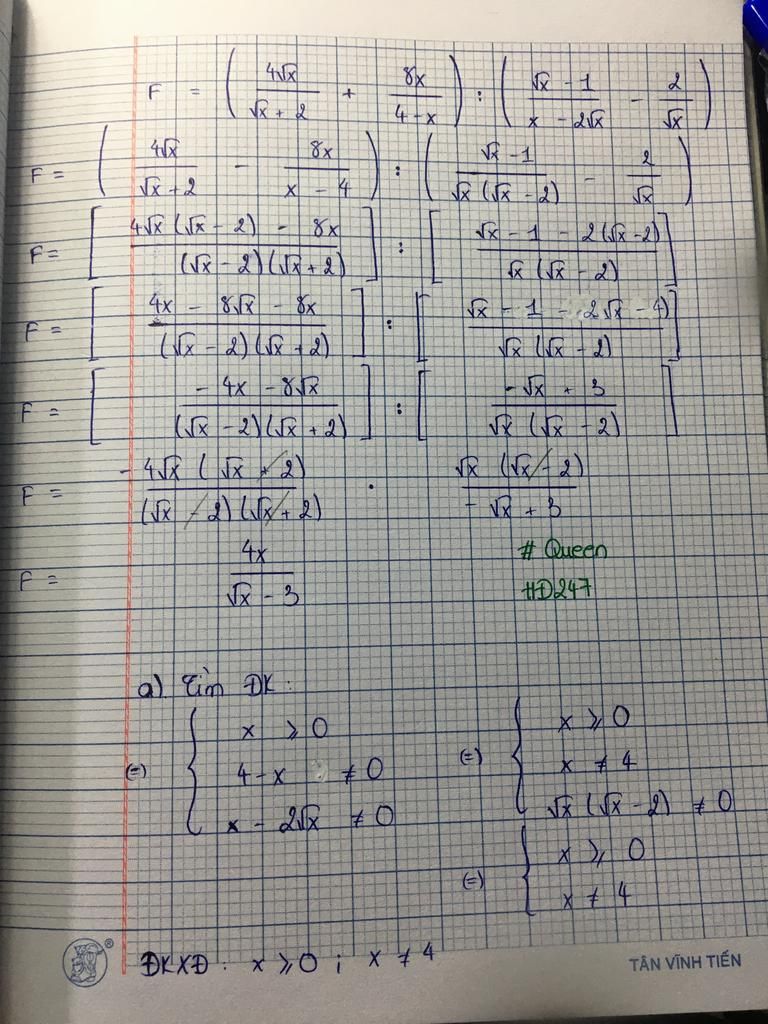 F = ( 4√x / (√x + 2) + 8x / (4 - x) ) : ( (√x - 1) / (x - 2√x) - 2 / √x )
F = ( 4√x / (√x + 2) - 8x / (x - 4) ) : ( (√x - 1) / (√x (√x - 2)) - 2 / √x )
F = [ (4√x (√x - 2) - 8x) / ((√x - 2)(√x + 2)) ] : [ (√x - 1 - 2(√x - 2)) / (√x (√x - 2)) ]
F = [ (4x - 8√x - 8x) / ((√x - 2)(√x + 2)) ] : [ (√x - 1 - 2√x - 4)) / (√x (√x - 2)) ]
F = [ (- 4x - 8√x) / ((√x - 2)(√x + 2)) ] : [ (- √x + 3) / (√x (√x - 2)) ]
F = - 4√x (√x + 2) / ((√x - 2)(√x + 2)) . √x (√x - 2) / (- √x + 3)
F = 4x / (√x - 3)
# Queen
#D247
a) Tìm ĐK:
(=) { x ⩾ 0
4 - x ≠ 0
x - 2√x ≠ 0
(=) { x ⩾ 0
x ≠ 4
√x (√x - 2) ≠ 0
(=) { x ⩾ 0
x ≠ 4
ĐKXĐ: x ⩾ 0 ; x ≠ 4
®
TÂN VĨNH TIẾN